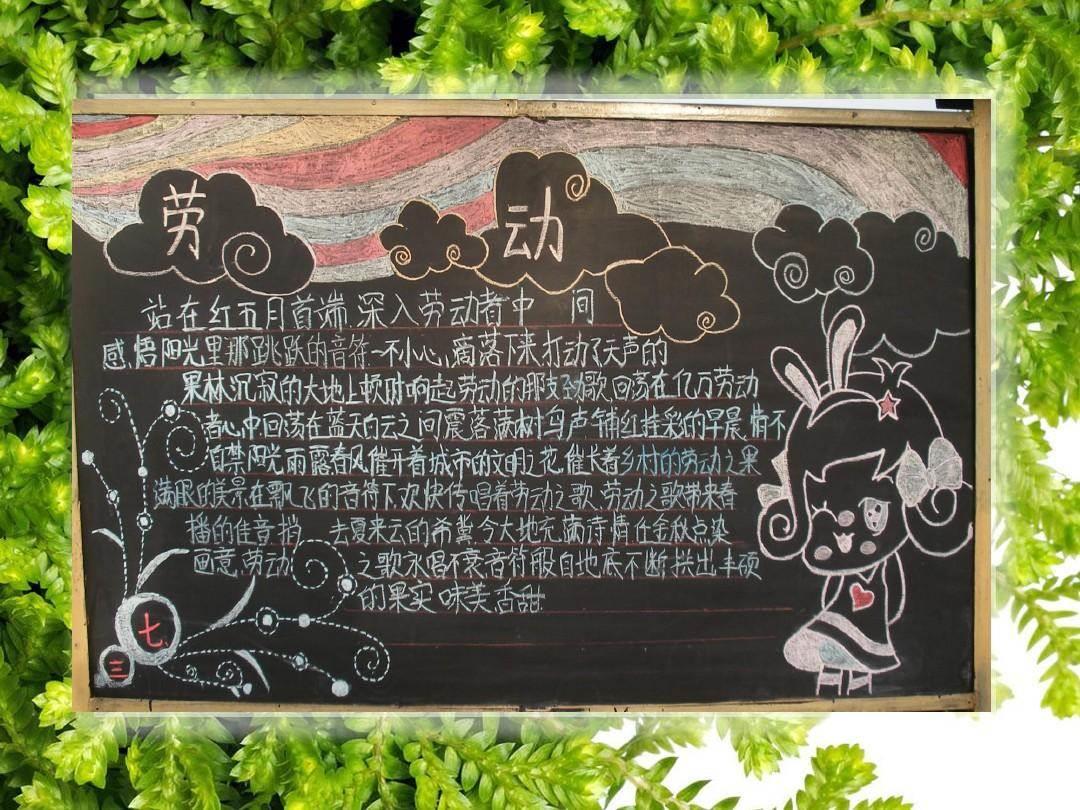 劳动
站在红五月首端 深入劳动者中 间
感 悟阳光里那跳跃的音符一不小心 滴落下来打动了天声的
果林沉寂的大地上顿时响起劳动的那支劲歌回荡在亿万劳动
者心中回荡在蓝天白云之间震落满树鸟声铺红挂彩的早晨 情不
自禁阳光雨露春风催开着城市的文明之花催长着乡村的劳动之果
满眼的美景在飘飞的音符下欢快传唱着劳动之歌 劳动之歌带来春
播的佳音捎 去夏来云的希冀今大地充满诗情任金秋点染
画意劳动 之歌永唱不衰音符般自地底不断拱出丰硕
的果实 味美香甜
七
三